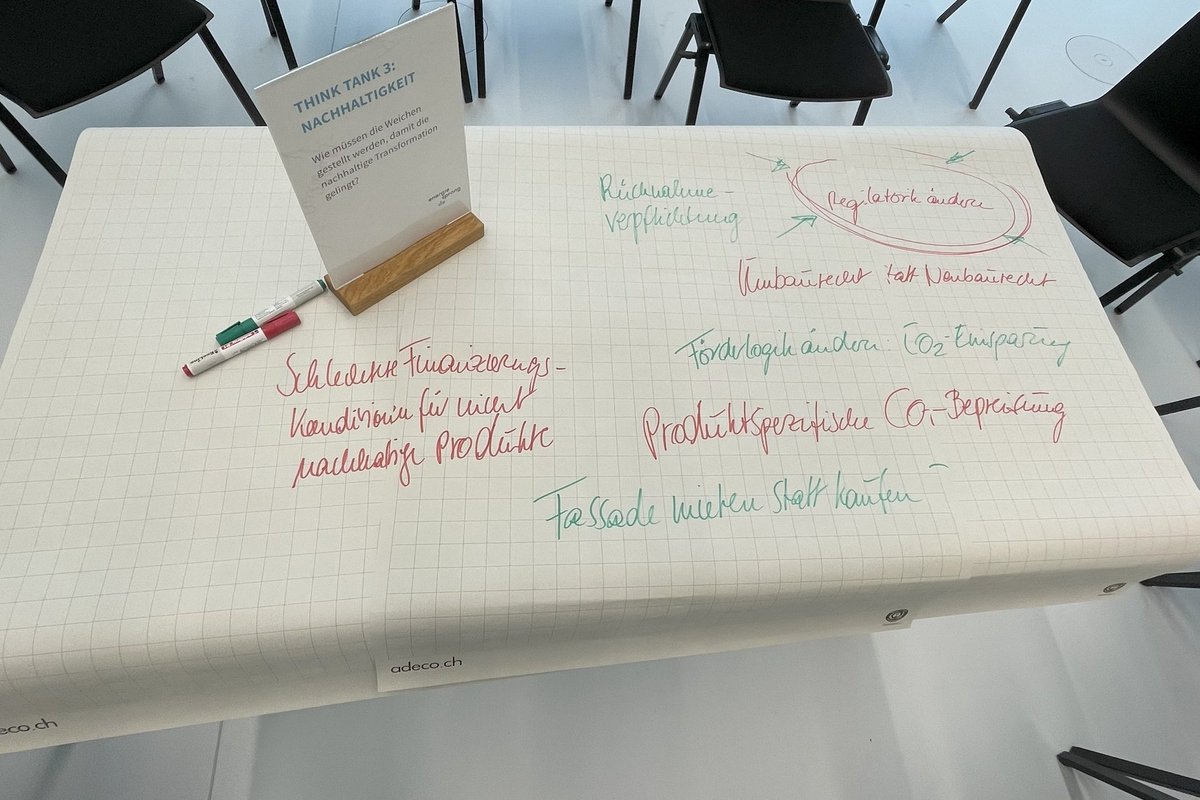 THINK TANK 3:
NACHHALTIGKEIT
Wie müssen die Weichen
gestellt werden, damit die
nachhaltige Transformation
gelingt?
energie
sprung
Rücknahme-
verpflichtung
Regilatorik ändern
Umbaurecht statt Neubaurecht
Förderlogik ändern: CO2-Einsparung
Schlechte Finanzierungs-
Konditionen für nicht
nachhaltige Produkte
Produktspezifische CO2-Bepreisung
Fassade mieten statt kaufen
adeco.ch
eco.ch